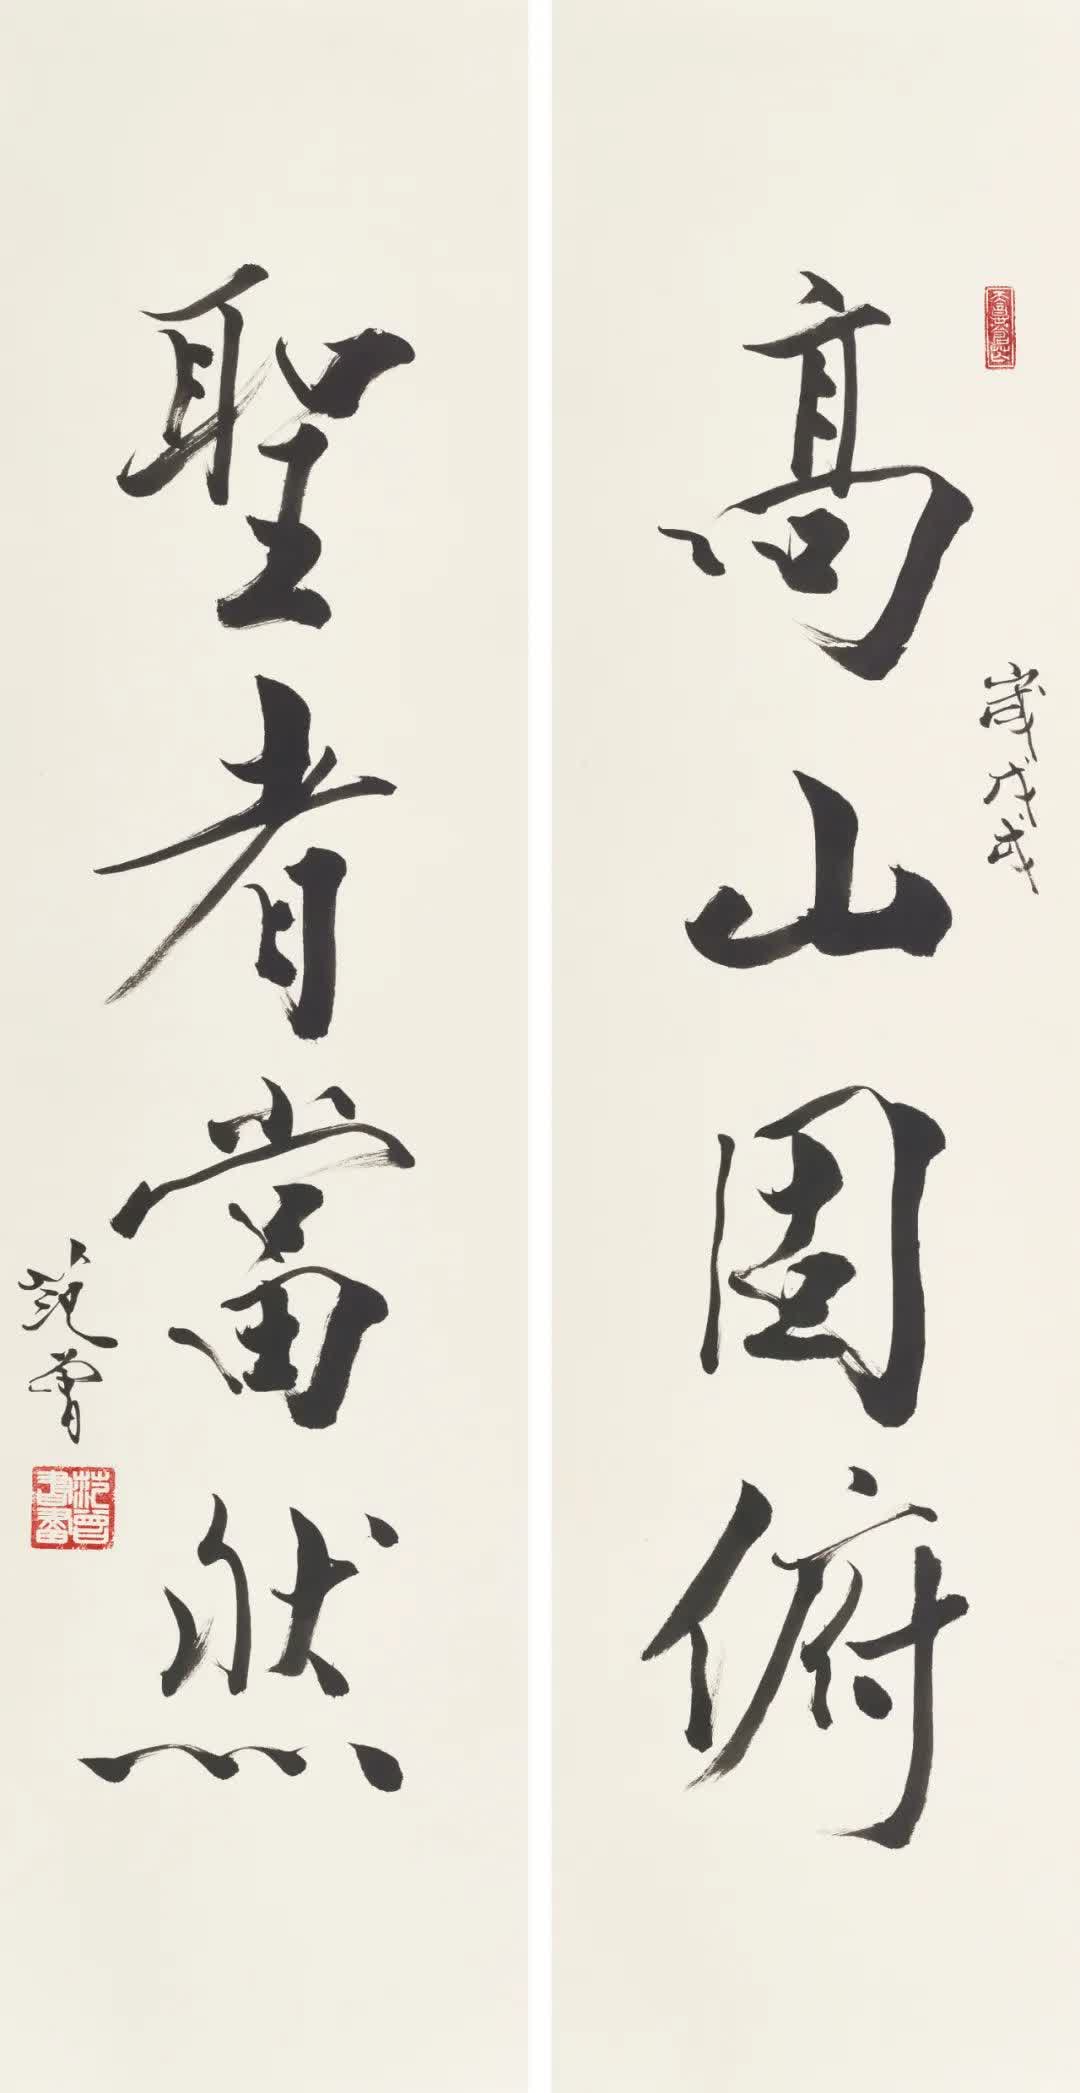 高山固俯
歲戊戌
聖者當然
范曾
范曾書畫